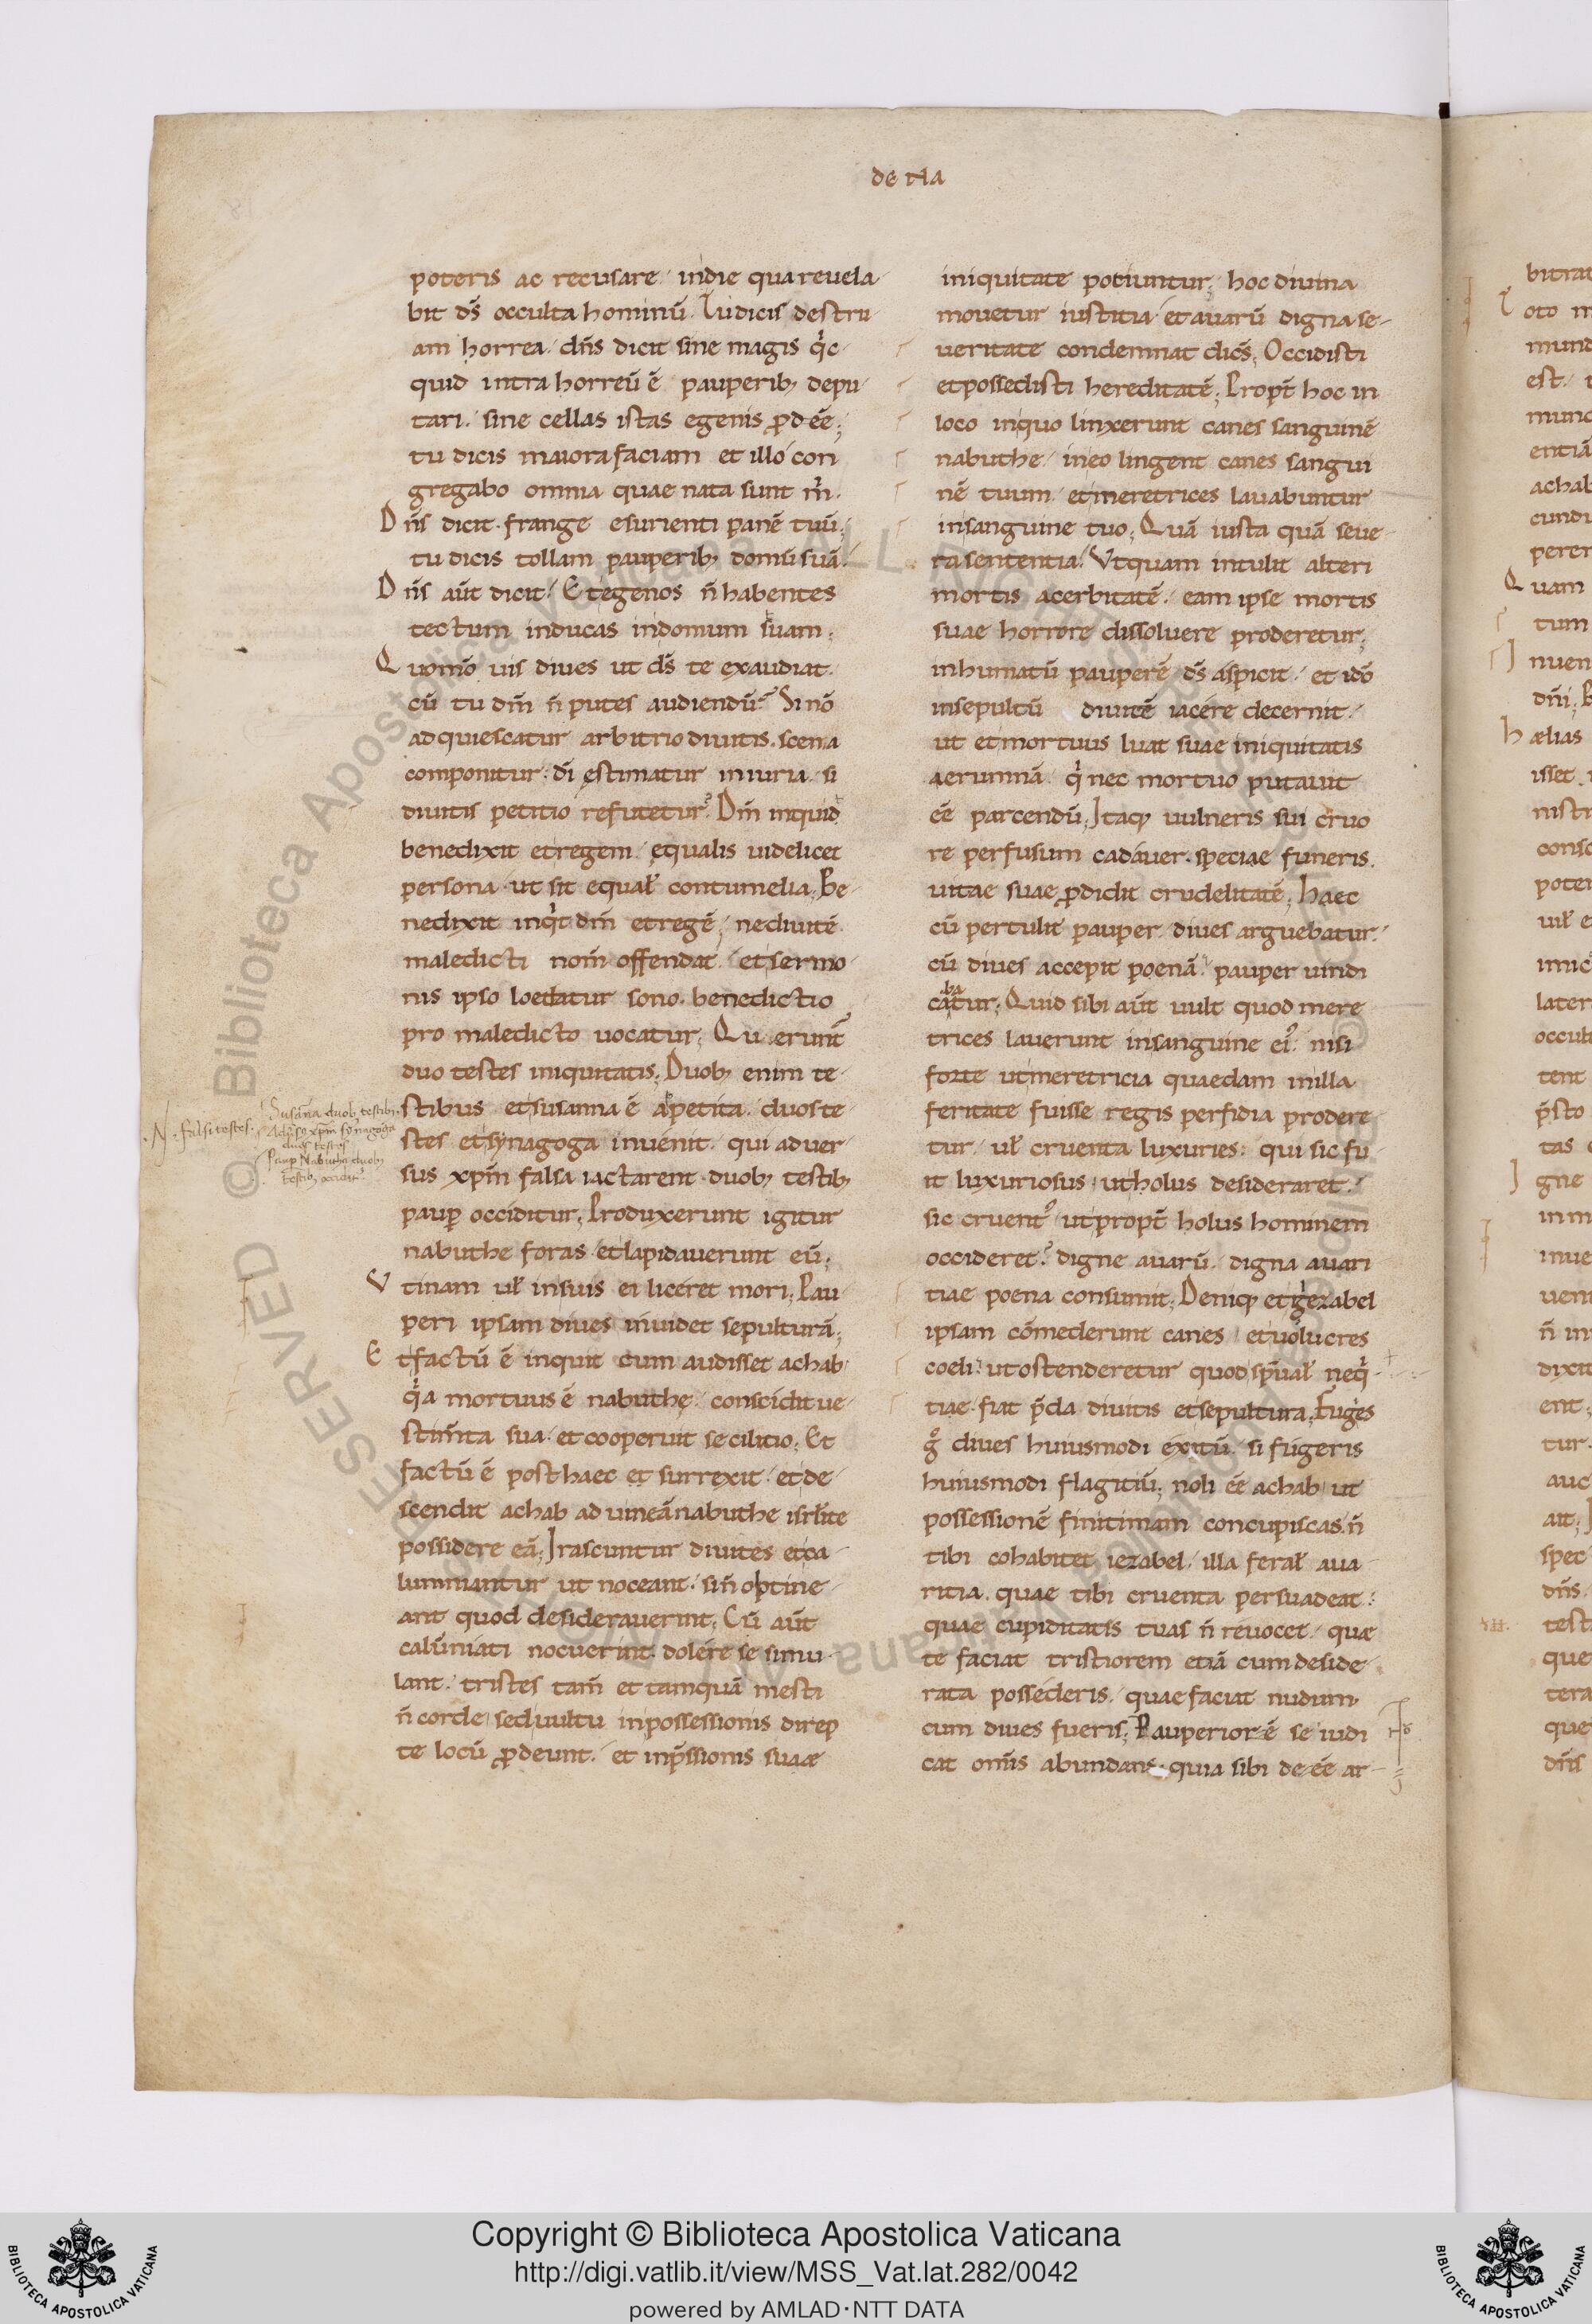 de na
poteris ac recusare in die qua reuela
bit d̄s occulta hominū. Tu dicis destru
am horrea. dn̄s dicit sine magis q̇c
quid intra horreū ē pauperib; depu
tari. sine cellas istas egenis ꝓdeē;
tu dicis maiora faciam et illo con
gregabo omnia quae nata sunt m̄.
Dn̄s dicit. frange esurienti panē tuū;
tu dicis tollam pauperib; domū suā.
Dn̄s aūt dicit. Et egenos n̄ habentes
tectum inducas in domum suam;
Quomō uis diues ut d̄s te exaudiat.
cū tu dm̄ n̄ putes audiendū? Si nō
adquiescatur arbitrio diuitis. scena
componitur. dī ęstimatur iniuria. si
diuitis petitio refutetur? Dm̄ inquid
benedixit et regem. ęqualis uidelicet
persona. ut sit equal̄ contumelia; Be
nedixit inq̇t dm̄ et regē; ne diuitē
maledicti nom̄ offendat. et sermo
nis ipso loedatur sono. benedictio
pro maledicto uocatur; Qu erunt̄
duo testes iniquitatis; Duob; enim te
stibus et susanna ē apetita. duos te
stes et synagoga inuenit. qui aduer
sus xpm̄ falsa iactarent. duob; testib;
paup̱ occiditur; Produxerunt igitur
nabuthe foras et lapidauerunt eū;
Vtinam ul̄ in suis ei liceret mori; Pau
peri ipsam diues inuidet sepulturā;
Et factū ē inquit cum audisset achab
q̇a mortuus ē nabuthę. conscidit ue
stim̄ta sua. et cooperuit se cilitio; Et
factū ē post haec et surrexit. et de
scendit achab ad uineā nabuthe isrl̄ite
possidere eā; Irascuntur diuites et ca
lumniantur ut noceant. si n̄ optine
ant quod desiderauerint; Cū aūt
calūniati nocuerint. dolere se simu
lant. tristes tam̄ et tamquā mesti
n̄ corde sed uultu in possessionis direp
te locū ꝓdeunt. et inp̄ssionis suae
N. falsi testes.
Susanna duob; testib;
duos testes
Paup̱ Nabuthe duob;
testib; occidit᷑
iniquitate potiuntur; hoc diuina
mouetur iustitia et auarū digna se
ueritate condemnat dic̄s; Occidisti
et possedisti hereditatē; Propt̄ hoc in
loco in quo linxerunt canes sanguinē
nabuthe. in eo lingent canes sangui
nē tuum. et meretrices lauabuntur
in sanguine tuo; Quā iusta quā seue
ra sententia. Vt quam intulit alteri
mortis acerbitatē. eam ipse mortis
suae horrore dissoluere proderetur;
inhumatū pauperē d̄s aspicit. et idō
insepultū diuitē iacere decernit.
ut et mortuus luat suae iniquitatis
aerumnā. q̇ nec mortuo putauit
eē parcendū; Itaq; uulneris sui cruo
re perfusum cadauer. speciae funeris.
uitae suae ꝓdidit crudelitatē; Haec
cū pertulit pauper diues arguebatur.
cū diues accepit poenā. pauper uindi
cabatur; Quid sibi aūt uult quod mere
trices lauerunt in sanguine ei᷒. nisi
forte ut meretricia quaedam in illa
feritate fuisse regis perfidia prodere
tur. ul̄ cruenta luxuries. qui sic fu
it luxuriosus ut holus desideraret.
sic cruent᷒ ut propt̄ holus hominem
occideret? digne auarū. digna auari
tiae poena consumit; Deniq; et gezabel
ipsam cōmederunt canes et uolucres
coeli. ut ostenderetur quod sp̄ual̄ neq̇
tiae. fiat p̄da diuitis et sepultura; Fuges
g̊ diues huiusmodi exitū. si fugeris
huiusmodi flagitiū; noli eē achab ut
possessionē finitimam concupiscas. n̄
tibi cohabitet iezabel. illa feral̄ aua
ritia. quae tibi cruenta persuadeat.
quae cupiditatis tuas n̄ reuocet. quae
te faciat tristiorem etiā cum deside
rata possederis. quae faciat nudum
cum diues fueris; Pauperiorē se iudi
cat omīs abundans. quia sibi deeē ar
Copyright © Biblioteca Apostolica Vaticana
http://digi.vatlib.it/view/MSS_Vat.lat.282/0042
powered by AMLAD·NTT DATA
BIBLIOTECA APOSTOLICA VATICANA
BIBLIOTECA APOSTOLICA VATICANA